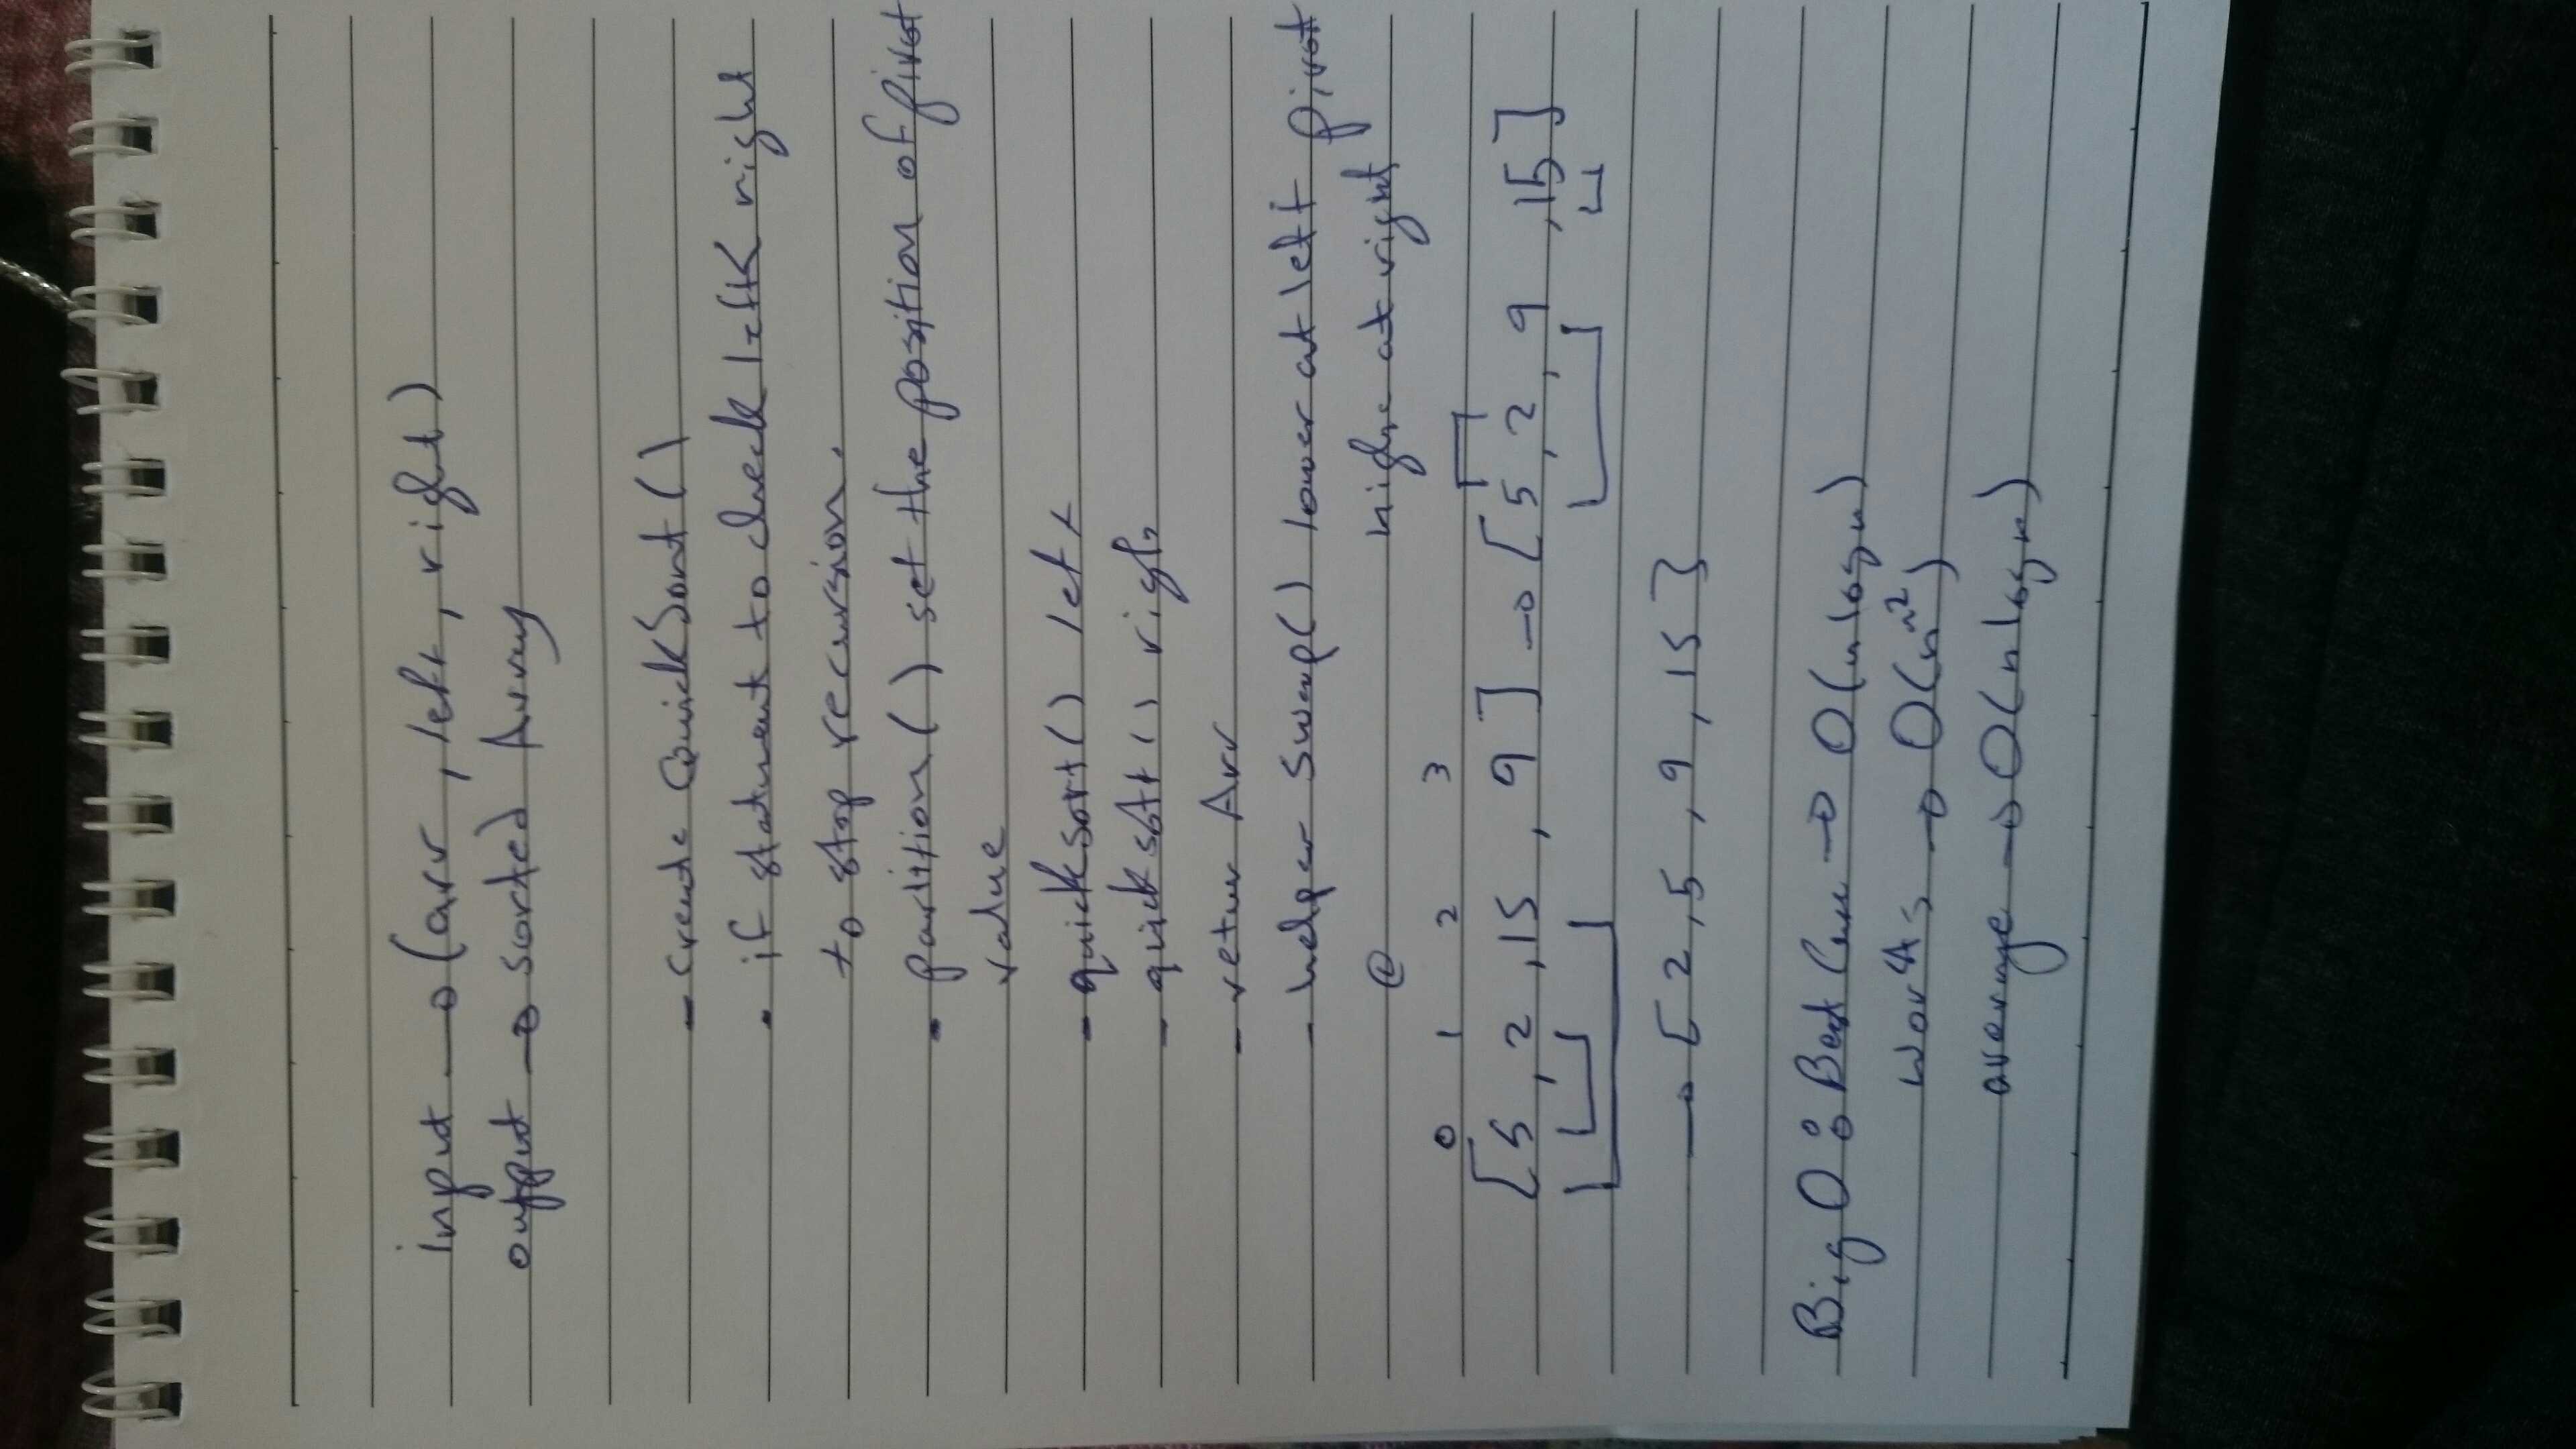 input → (arr, left, right)
output → sorted Array
- create QuickSort()
• if statment to check left < right
to stop recursion.
- partition() set the position of pivot
value
- quick sort() left
- quick sort() right
- return Arr
- helper Swap() lower at left pivot
@ highe at right
0 1 2 3
[5, 2, 15, 9] → [5, 2, 9, 15]
→ [2, 5, 9, 15]
Big O : Best Case → O(n log n)
worts → O(n^2)
average → O(n log n)